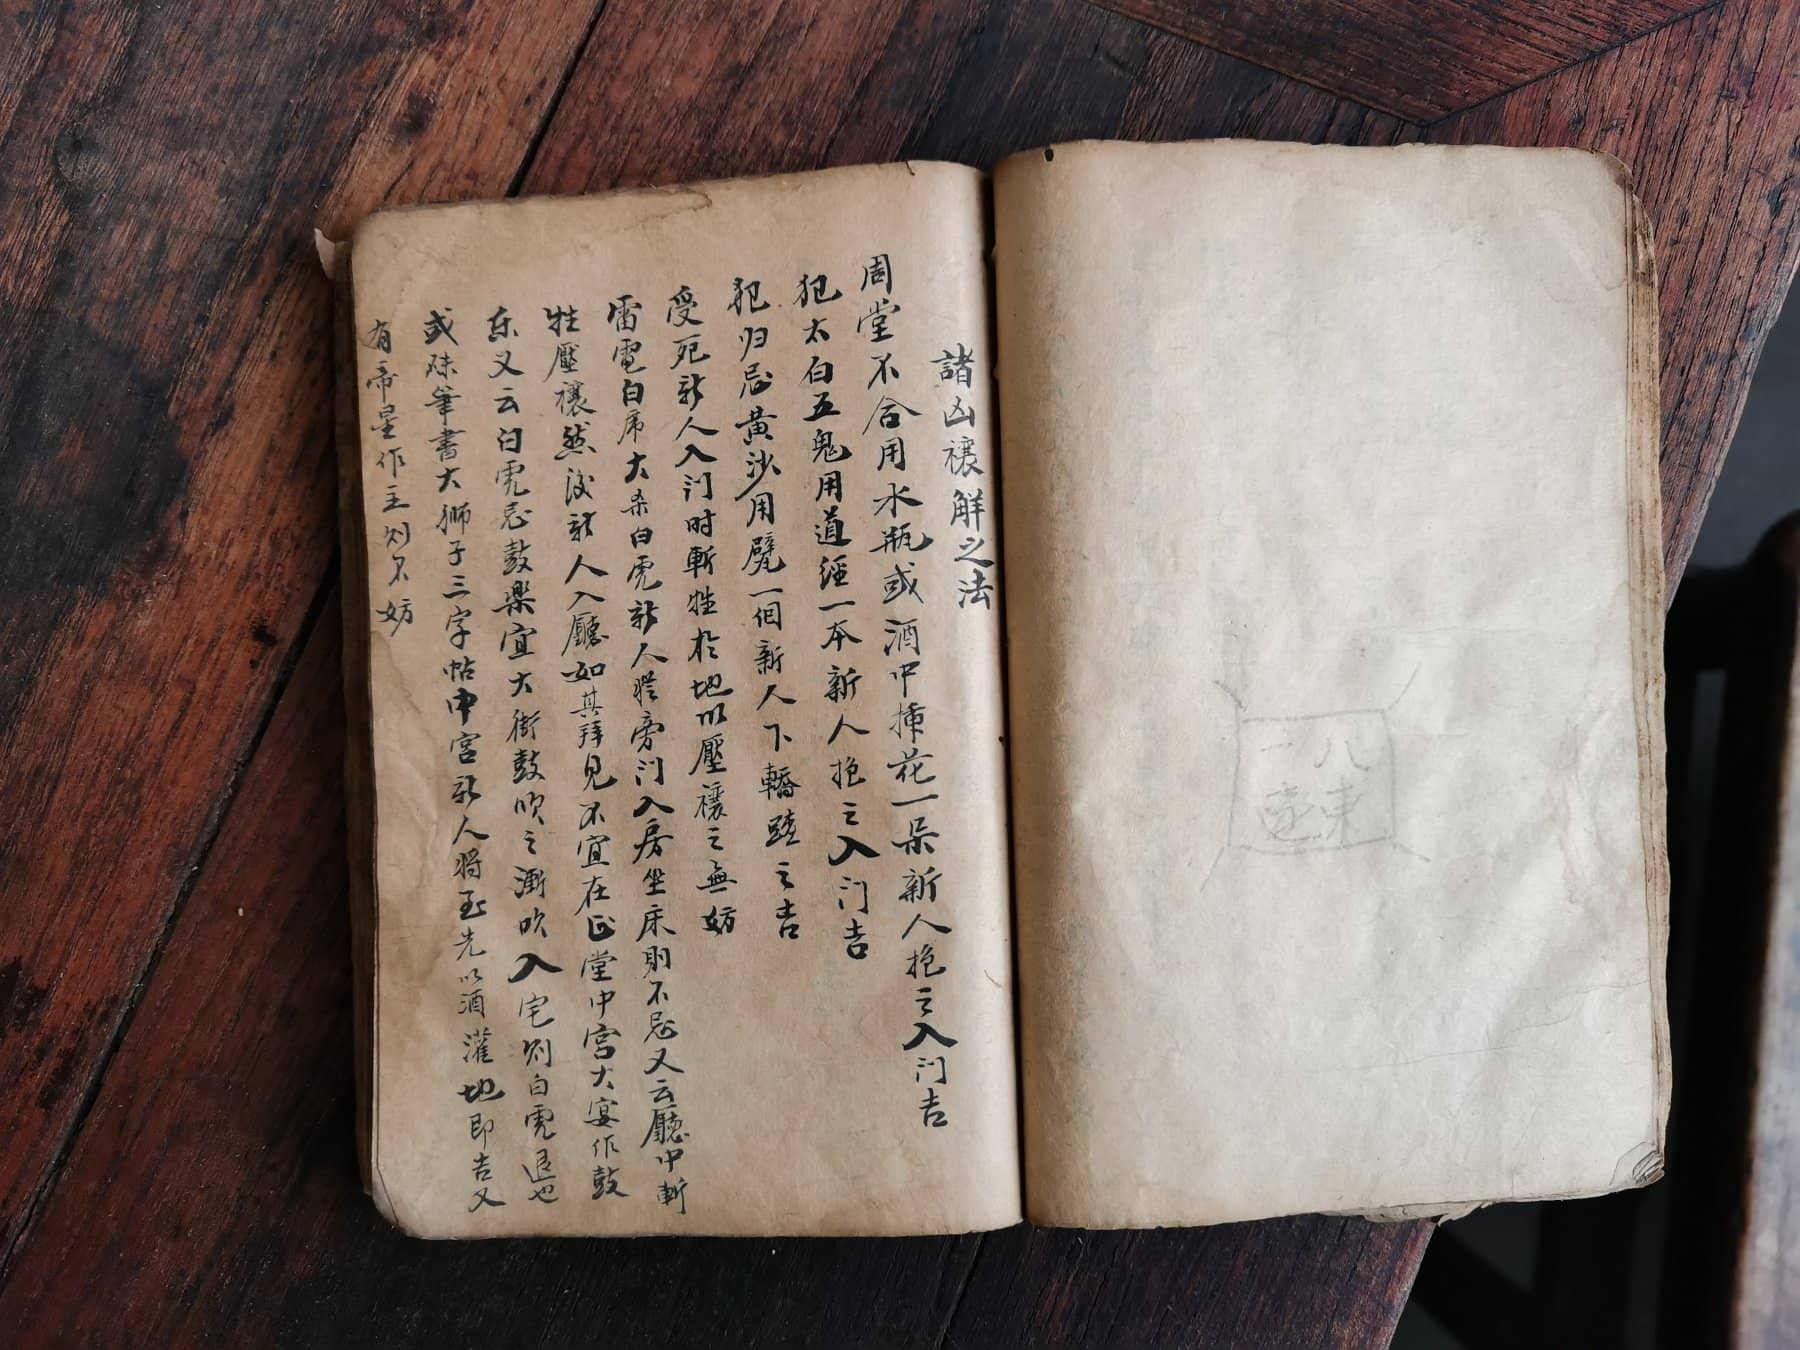 諸凶禳解之法
周堂不合用水瓶或酒中揷花一朵新人抱之入门吉
犯太白五鬼用道經一本新人抱之入门吉
犯归忌黄沙用甓一個新人下轎踏之吉
受死新人入门时斬牲於地以壓禳之無妨
雷電白虎大杀白虎新人從旁门入房坐床則不忌又云廳中斬
牲壓禳然後新人入廳如其拜見不宜在正堂中宮大宴作鼓
乐又云白虎忌鼓樂宜大街鼓吹之漸吹入宅则白虎退也
或硃筆書大獅子三字帖中宮新人將至先以酒灌地即吉又
有帝星作主则不妨
八東
一